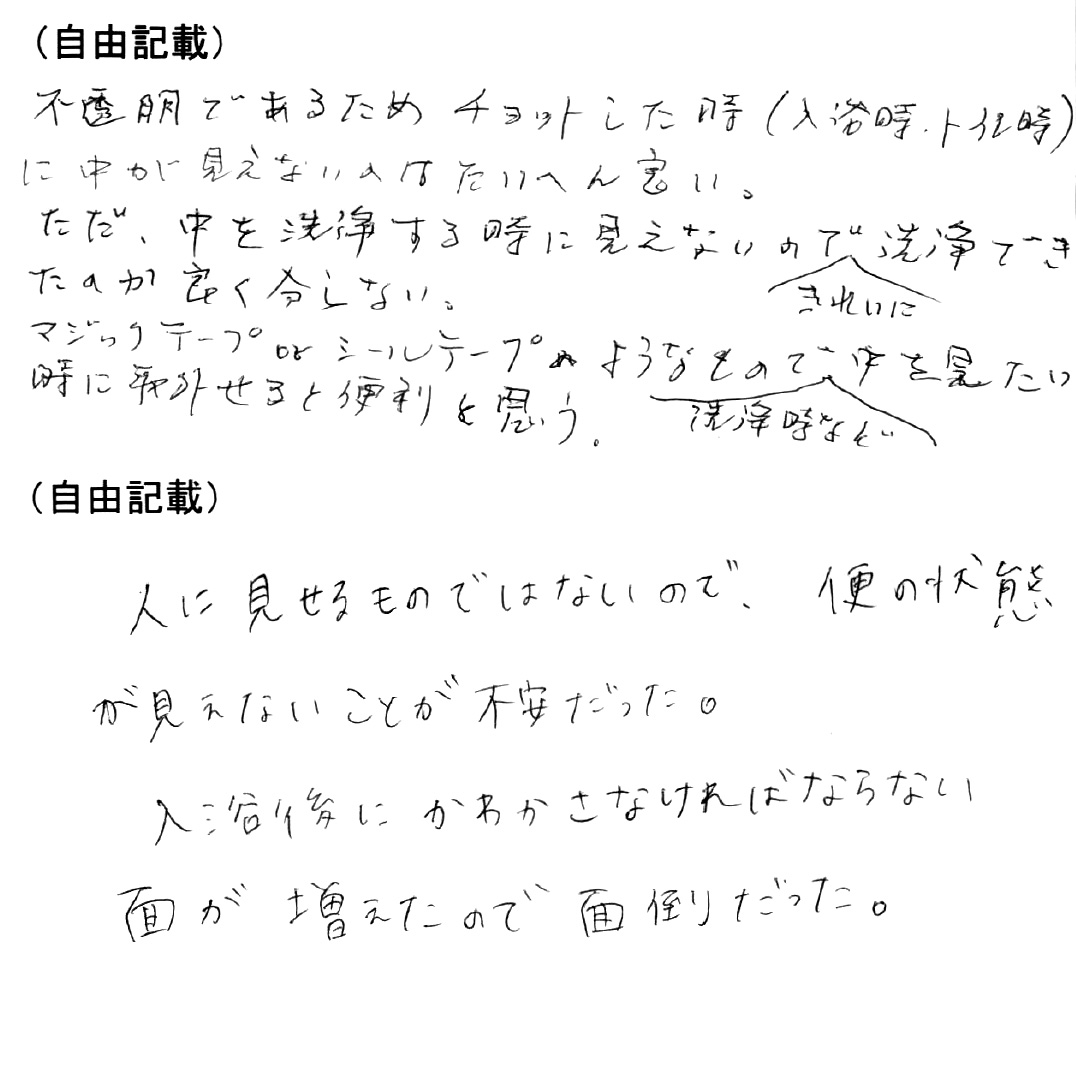 （自由記載）
不透明であるため チョットした時（入浴時、トイレ時）
に中が見えないのはたいへん良い。
ただ、中を洗浄する時に見えないので洗浄でき
きれいに
たのか良く分らない。
マジックテープ or シールテープのようなもので中を見たい
洗浄時など
時に取外せると便利と思う。
（自由記載）
人に見せるものではないので、便の状態
が見えないことが不安だった。
入浴後にかわかさなければならない
面が増えたので面倒だった。